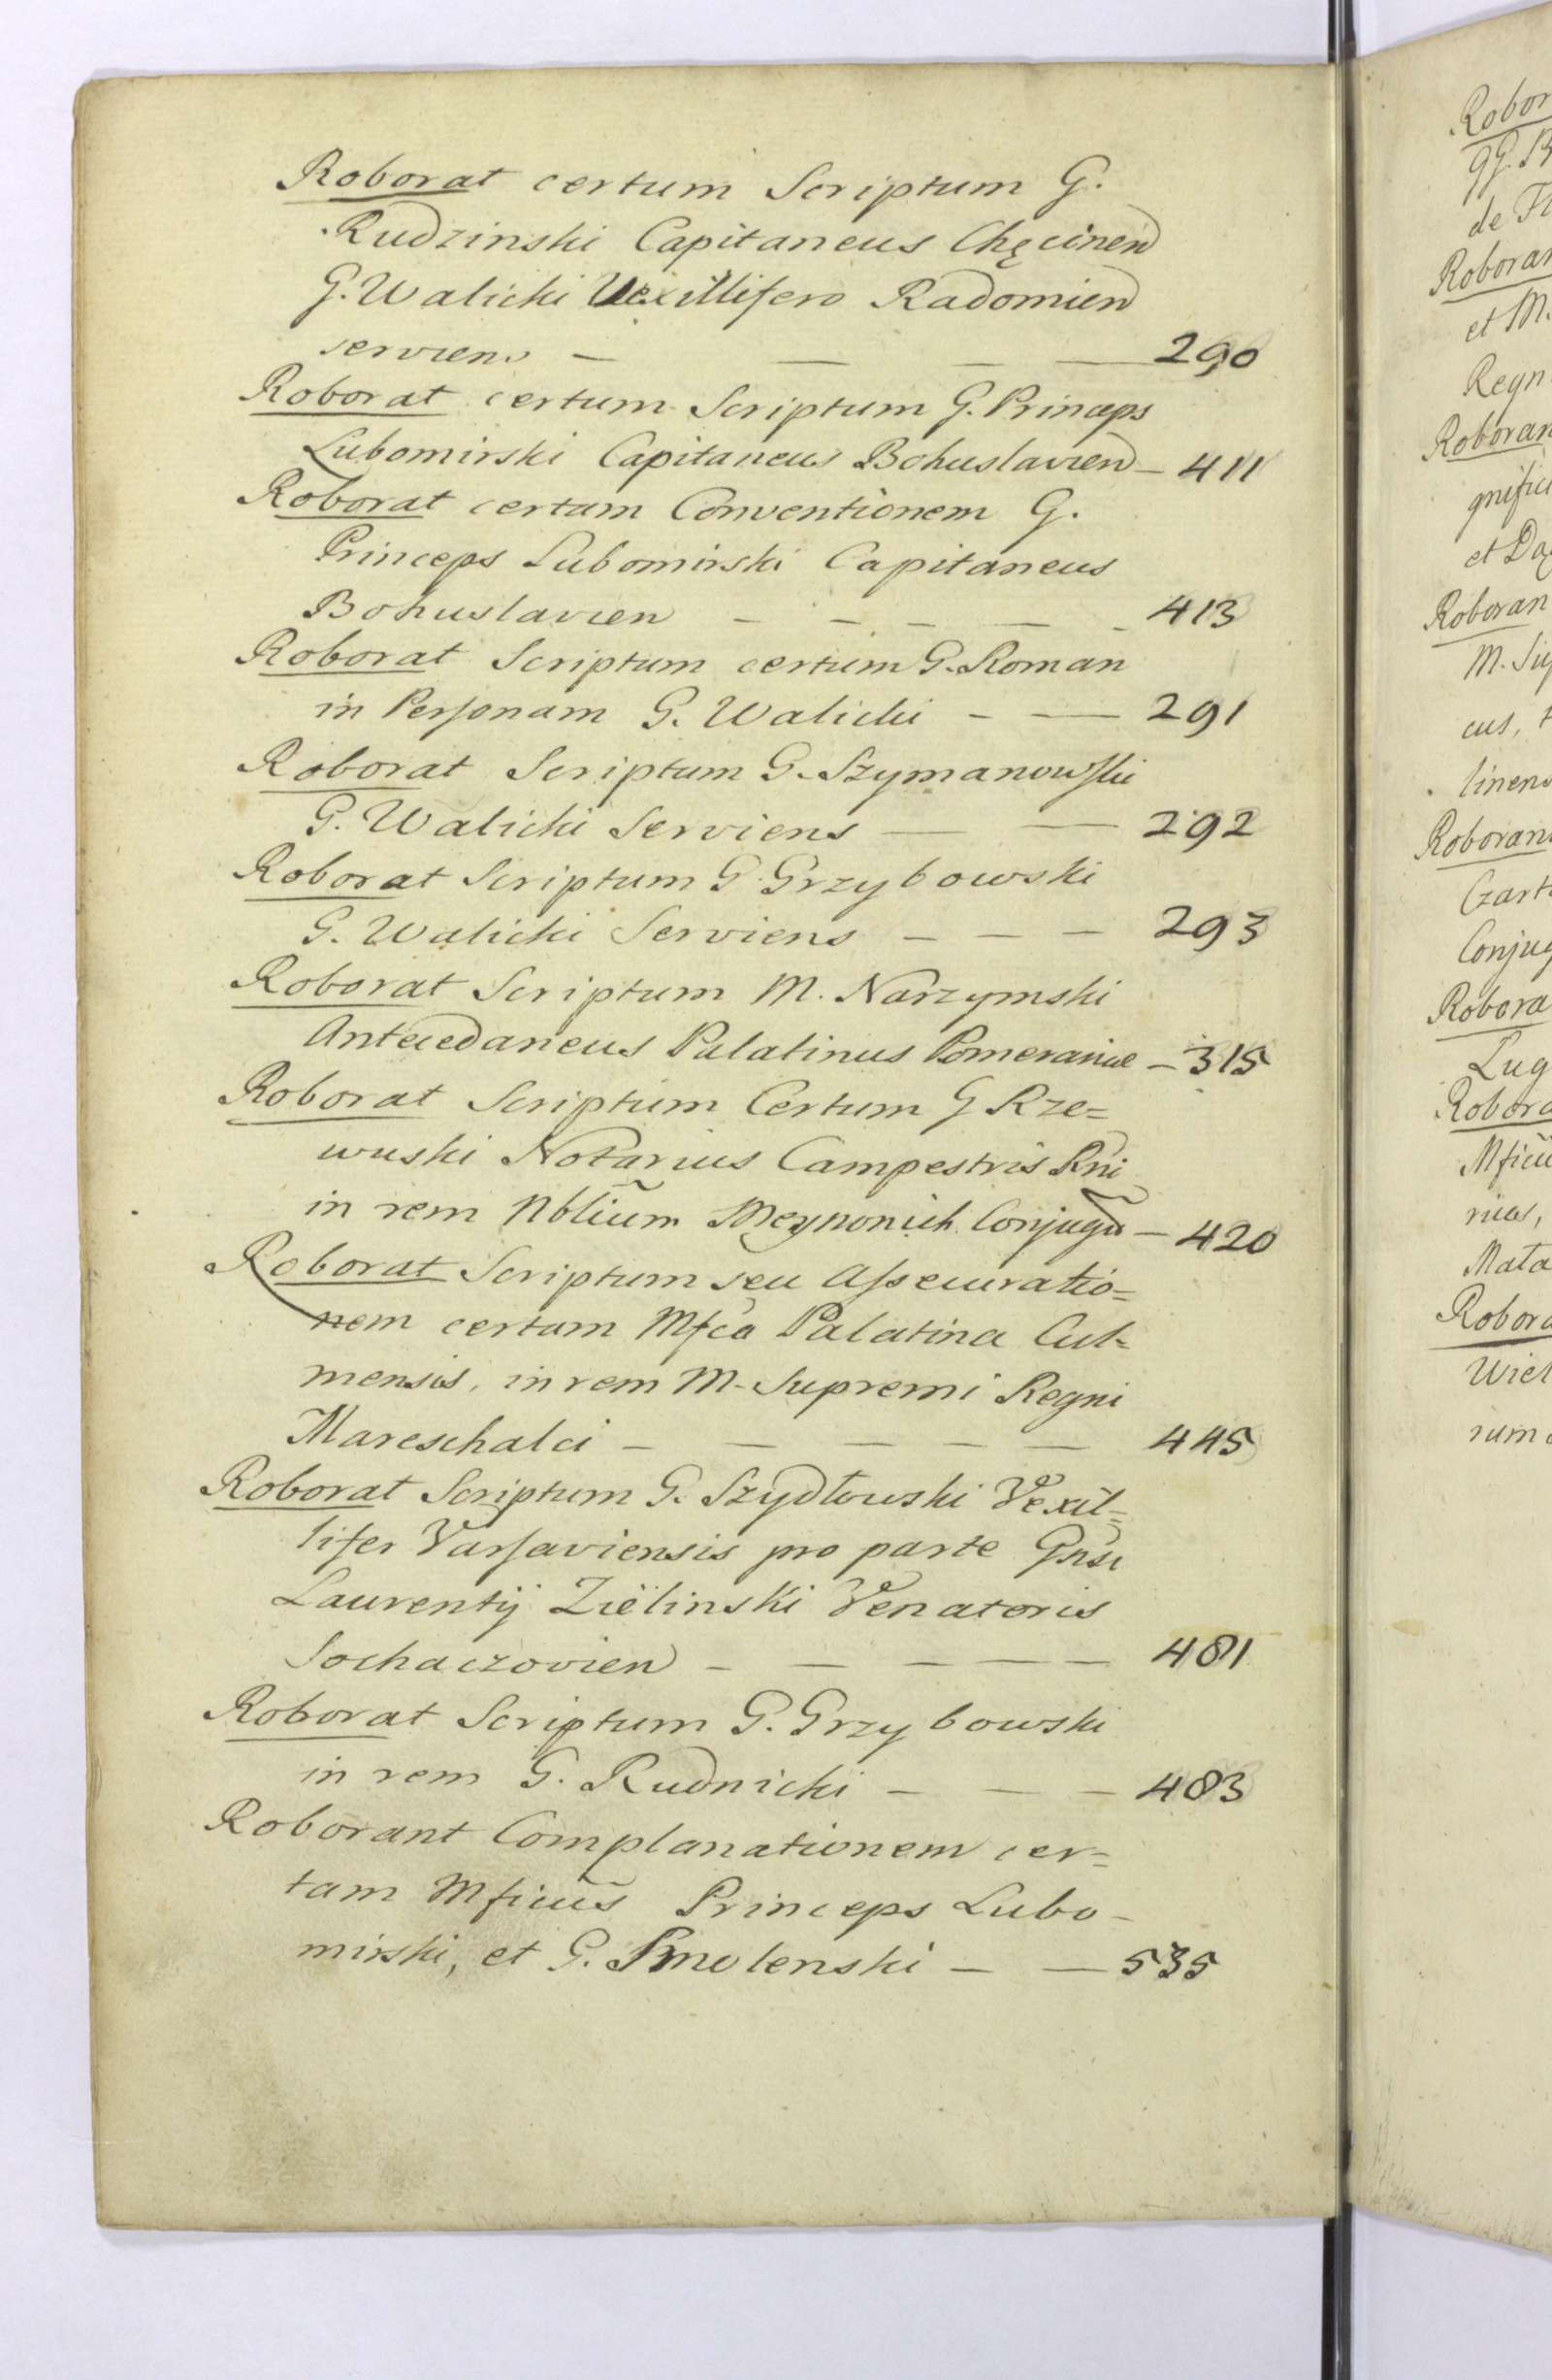 Roborat certum Scriptum G.
Rudzinski Capitaneus Chęcinen
G. Walicki Vexillifero Radomien
serviens — — — — 290
Roborat certum Scriptum G. Princeps
Lubomirski Capitaneus Bohuslavien — 411
Roborat certam Conventionem G.
Princeps Lubomirski Capitaneus
Bohuslavien — — — — - 413
Roborat Scriptum certum G. Roman
in Personam G. Walicki - — 291
Roborat Scriptum G. Szymanowski
G. Walicki Serviens — — 292
Roborat Scriptum G. Grzybowski
G. Walicki Serviens — — — 293
Roborat Scriptum M. Narzymski
Antecedaneus Palatinus Pomeraniae — 315
Roborat Scriptum Certum G Rze=
wuski Notarius Campestris Rni
in rem Nblium Meynonich Conjugũ — 420
Roborat Scriptum seu Assecuratio=
nem certam Mfca Palatina Cul=
mensis, in rem M. Supremi Regni
Mareschalci — — — — — 445
Roborat Scriptum G. Szydłowski Vexil=
lifer Varsaviensis pro parte Gnsi
Laurentij Zielinski Venatoris
Sochaczovien — — — — — 481
Roborat Scriptum G. Grzybowski
in rem G. Rudnicki — — — 483
Roborant Complanationem cer=
tam Mficus Princeps Lubo-
mirski, et G. Smolenski — — 535
Robor
de
Roboran
et M.
Regn
Roboran
gnific
et
Roboran
M.
cus,
linens
Roboran
Czart
Conjug
Robora
Lug
Robora
Mficu
ricus,
Mata
Robora
Wiel
rum